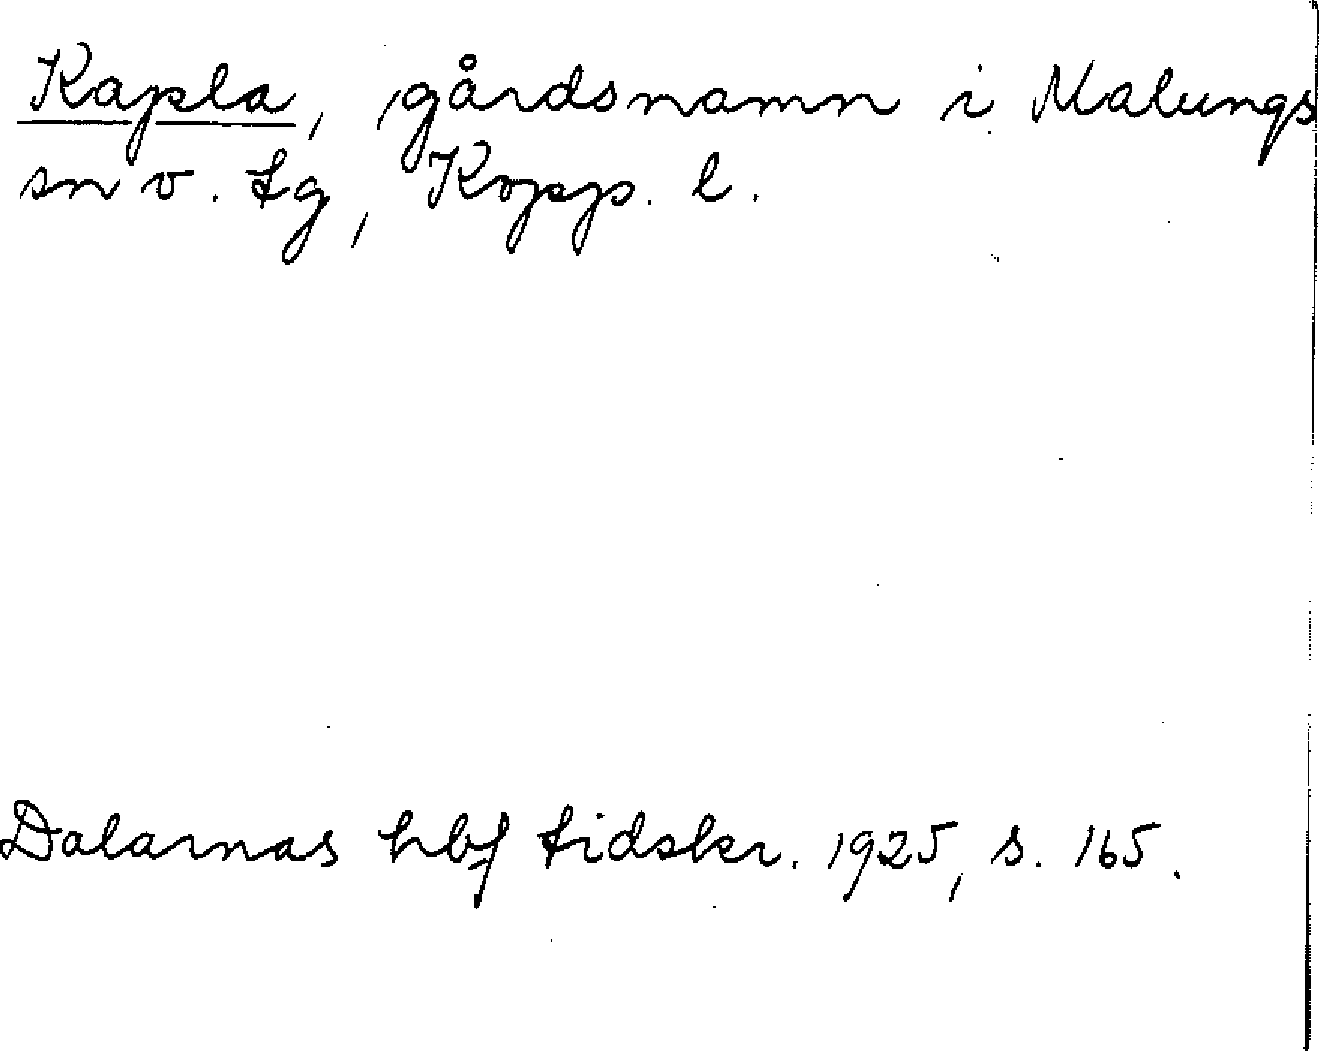 Kapla, gårdsnamn i Malungs
sn v. tg, Kopp. l.
Dalarnas hbf tidskr. 1925, s. 165.